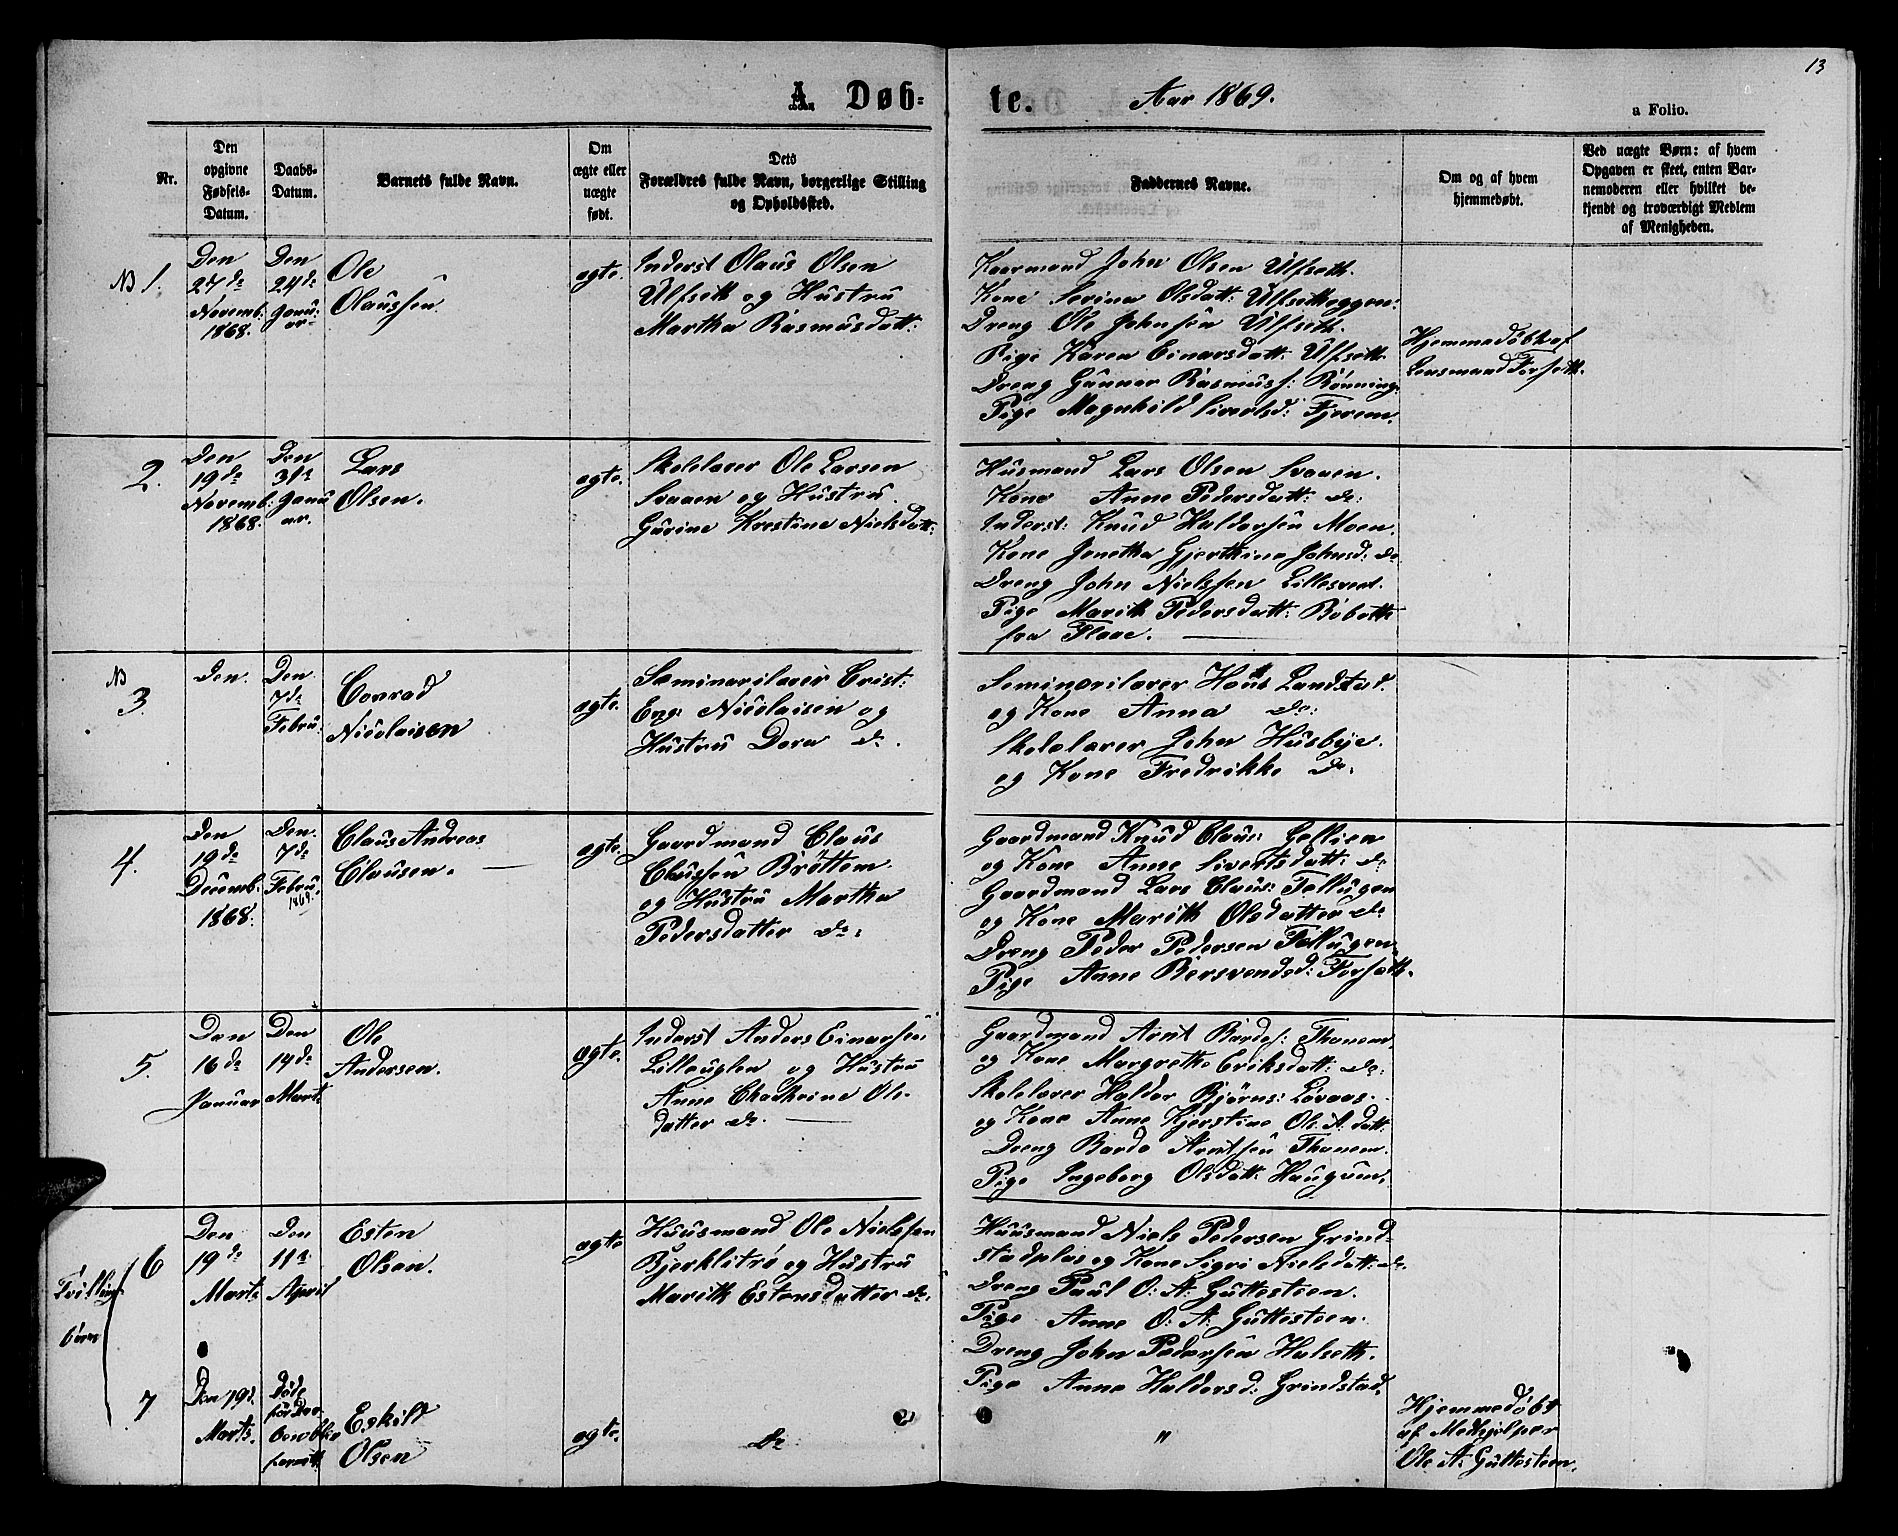 13
A. Døb-
te. Aar 1869.
a Folio.
Nr.
Den opgivne Fødsels-Datum.
Daabs-Datum.
Barnets fulde Navn.
Om ægte eller uægte født.
Dets Forældres fulde Navn, borgerlige Stilling og Opholdssted.
Faddernes Navne.
Om og af hvem hjemmedøbt.
Ved uægte Børn: af hvem Opgaven er skeet, enten Barnemoderen eller hvilket bekjendt og troværdigt Medlem af Menigheden.
NB 1.
Den 27de Novemb: 1868.
Den 24de Januar
Ole Olaussen.
ægte.
Inderst Olaus Olsen
Ulfseth og Hustru
Martha Rasmusdatt:
Kaarmand John Olsen Ulfseth.
Kone Serina Olsdatt: Ulfsetheggen:
Dreng Ole Johnsen Ulfseth.
Pige Karen Einarsdatt: Ulfseth
Dreng Gunnar Rasmuss: Rönning:
Pige Magnhild Sivertsd: Fjerem.
Hjemmedöbt af
Lensmand Forseth.
2.
Den 19de Novemb: 1868.
Den 31te Januar.
Lars Olsen.
ægte.
Skolelærer Ole Larsen
Svaaen og Hustru
Gurine Krestine Nielsdatt:
Husmand Lars Olsen Svaaen.
Kone Anne Pedersdatt: do:
Inderst: Knud Haldorsen Moen.
Kone Jonetha Gjerthine Johnsd: do
Dreng John Nielssen Lillesved.
Pige Marith Pedersdatt:
fra Flaae.
NB 3.
Den.
Den 7de Febru:
Conrad Nicolaisen
ægte.
Seminarilærer Crist:
Eng: Nicolaisen og
Hustru Dora do.
Seminarilærer Hans Landstad.
og Kone Anna do:
Skolelærer John Husbye.
og Kone Fredrikke do.
4.
Den 19de Decemb: 1868.
Den. 7de Febru. 1869.
Claus Andreas Clausen.
ægte.
Gaardmand Claus
Claussen Bröttem
og Hustru Martha
Pedersdatter do:
Gaardmand Knud Claus: Gellien
og Kone Anne Sivertsdatt: do
Gaardmand Lars Claus: Fallugen
og Kone Marith Olsdatter do
Dreng Peder Pedersen Fallugen
Pige Anne Bersvendsd: Forseth.
5.
Den 16de Januar
Den 14de Marts
Ole Andersen.
ægte.
Inderst Anders Einarsen
Lilleuglen og Hustru
Anne Chathrine Ols-
datter do.
Gaardmand Arnt Bardos: Thanem,
og Kone Margrethe Eriksdatt: do:
Skolelærer Haldor Björns: Lövaas.
og Kone Anne Kjerstine Ole A: datt:
Dreng Bardo Arntsen Thanem.
Pige Ingeborg Olsdatt: Haugum.
Tvilling-
börn
6
Den 19de Marts
Den 11te April
Esten Olsen.
ægte
Huusmand Ole Nielssen
Bjerklitrö og Hustru
Marith Estensdatter do.
Huusmand Niels Pedersen Grind-
stadplas og Kone Sigri Nielsdatt: do.
Dreng Paul O: A: Guttesteen.
Pige Anne O: A: Guttesteen.
Dreng John Pedersen Halseth.
Pige Anne Haldorsd: Grindstad.
7
Den 19de Marts.
Döde
Eskild Olsen
ægte.
do
"
Hjemmedöbt
af Medhjelper
Ole A: Guttesteen.